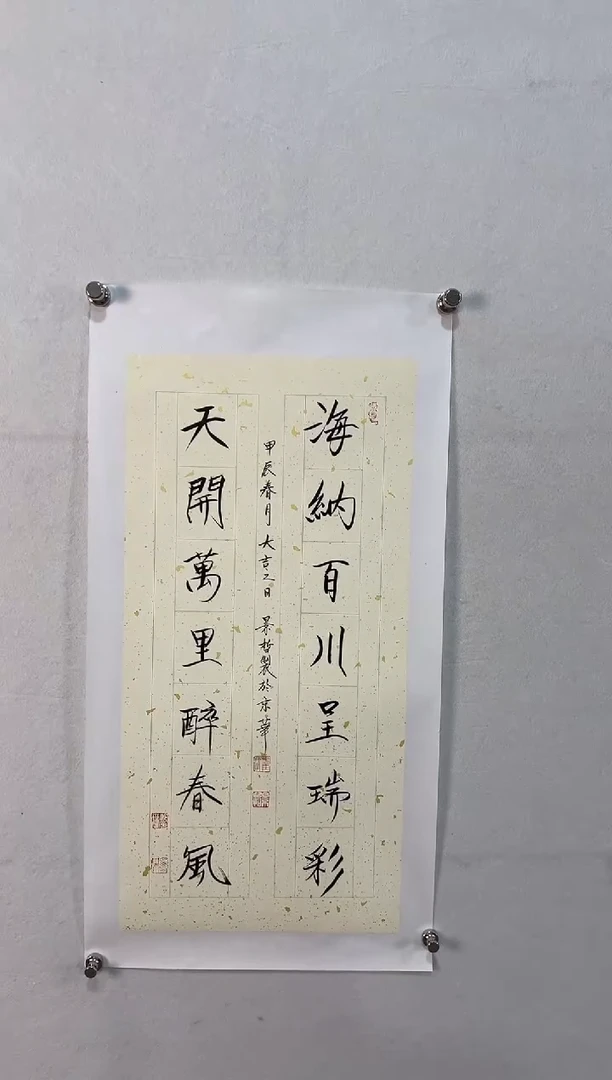 海納百川呈瑞彩
甲辰春月大吉之日景哲製於京華
天開萬里醉春風